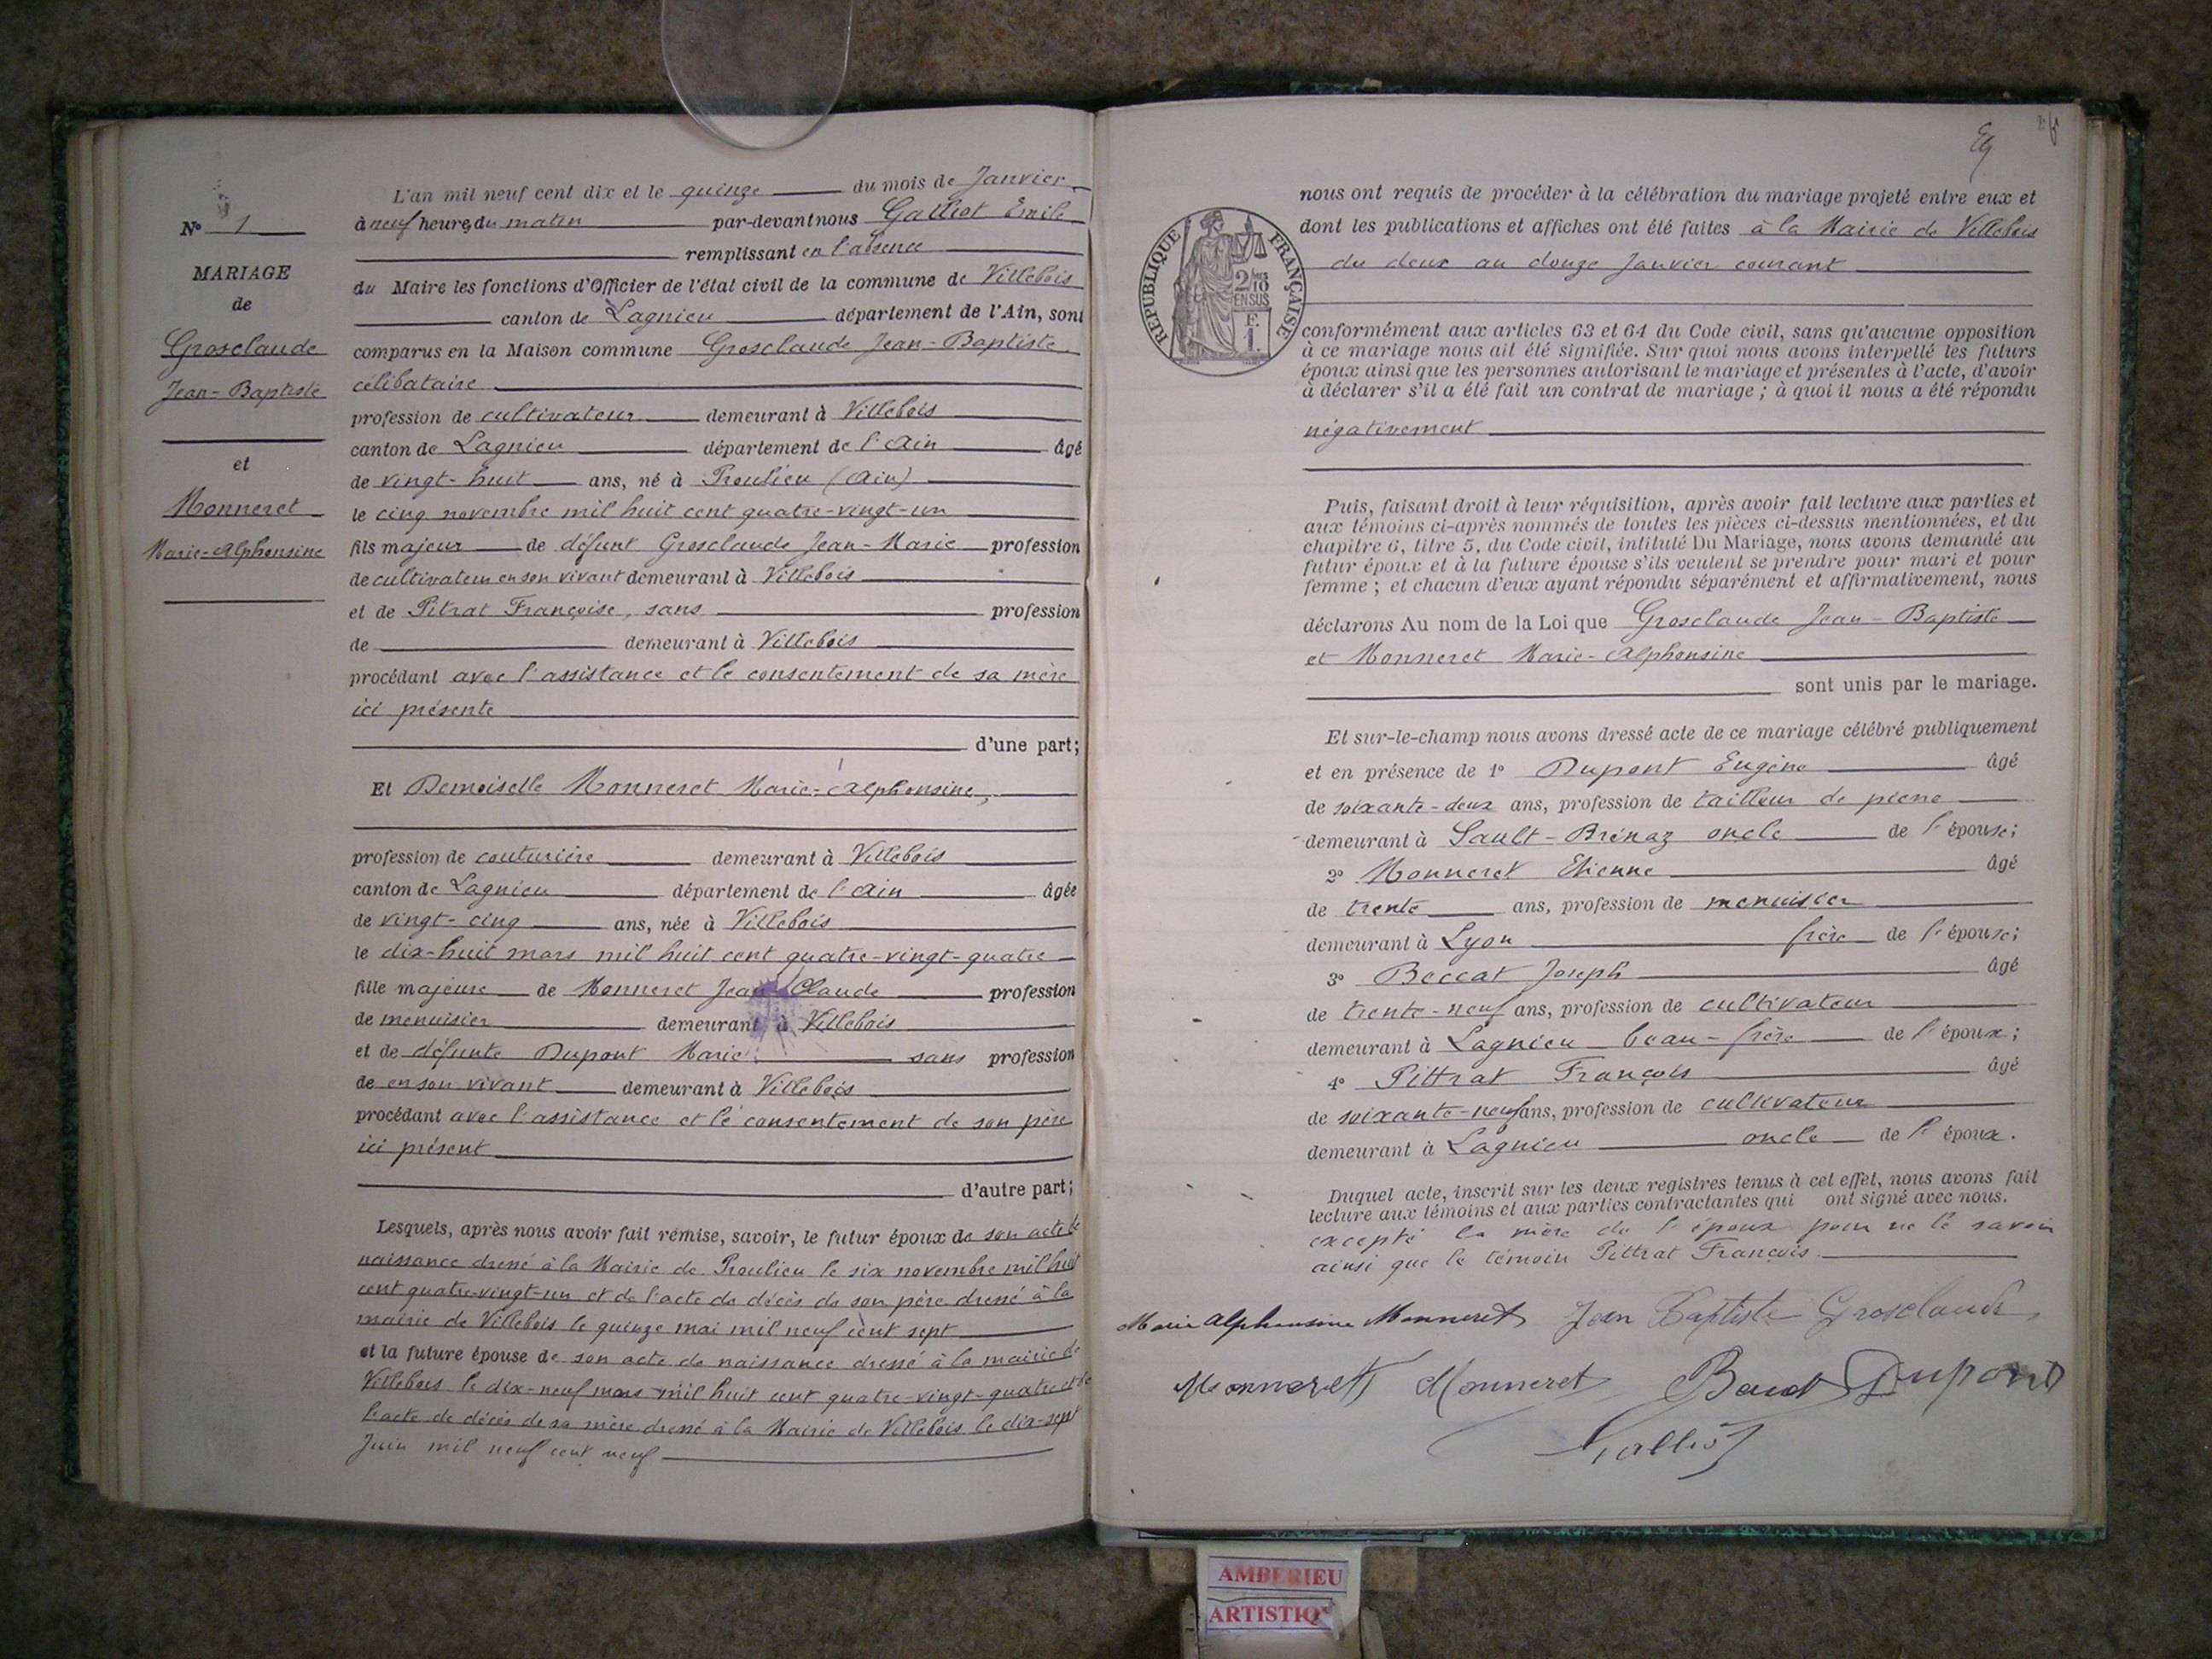 N° 1
MARIAGE
de
Grosclaude
Jean-Baptiste
et
Monneret
Marie-Alphonsine
L'an mil neuf cent dix et le quinze du mois de Janvier
à neuf heures du matin par-devant nous Galliot Emile
remplissant en l'absence
du Maire les fonctions d'Officier de l'état civil de la commune de Villebois
canton de Lagnieu département de l'Ain, sont
comparus en la Maison commune Grosclaude Jean-Baptiste
célibataire
profession de cultivateur demeurant à Villebois
canton de Lagnieu département de l'Ain âgé
de vingt-huit ans, né à Proulieu (Ain)
le cinq novembre mil huit cent quatre-vingt-un
fils majeur de défunt Grosclaude Jean-Marie profession
de cultivateur en son vivant demeurant à Villebois
et de Pitrat Françoise, sans profession
de demeurant à Villebois
procédant avec l'assistance et le consentement de sa mère
ici présente
d'une part;
Et Demoiselle Monneret Marie-Alphonsine,
profession de couturière demeurant à Villebois
canton de Lagnieu département de l'Ain âgée
de vingt-cinq ans, née à Villebois
le dix-huit mars mil huit cent quatre-vingt-quatre
fille majeure de Monneret Jean Claude profession
de menuisier demeurant à Villebois
et de défunte Dupont Marie sans profession
de en son vivant demeurant à Villebois
procédant avec l'assistance et le consentement de son père
ici présent
d'autre part;
Lesquels, après nous avoir fait remise, savoir, le futur époux de son acte de
naissance dressé à la Mairie de Proulieu le six novembre mil huit
cent quatre-vingt-un et de l'acte de décès de son père dressé à la
mairie de Villebois le quinze mai mil neuf cent sept
et la future épouse de son acte de naissance dressé à la mairie de
Villebois le dix-neuf mars mil huit cent quatre-vingt-quatre et de
l'acte de décès de sa mère dressé à la Mairie de Villebois le dix-sept
Juin mil neuf cent neuf
nous ont requis de procéder à la célébration du mariage projeté entre eux et
dont les publications et affiches ont été faites à la Mairie de Villebois
du deux au douze Janvier courant
RÉPUBLIQUE FRANÇAISE
2/10
EN SUS
F.
1.
conformément aux articles 63 et 64 du Code civil, sans qu'aucune opposition
à ce mariage nous ait été signifiée. Sur quoi nous avons interpellé les futurs
époux ainsi que les personnes autorisant le mariage et présentes à l'acte, d'avoir
à déclarer s'il a été fait un contrat de mariage ; à quoi il nous a été répondu
négativement
Puis, faisant droit à leur réquisition, après avoir fait lecture aux parties et
aux témoins ci-après nommés de toutes les pièces ci-dessus mentionnées, et du
chapitre 6, titre 5, du Code civil, intitulé Du Mariage, nous avons demandé au
futur époux et à la future épouse s'ils veulent se prendre pour mari et pour
femme ; et chacun d'eux ayant répondu séparément et affirmativement, nous
déclarons Au nom de la Loi que Grosclaude Jean-Baptiste
et Monneret Marie-Alphonsine
sont unis par le mariage.
Et sur-le-champ nous avons dressé acte de ce mariage célébré publiquement
et en présence de 1° Dupont Eugène âgé
de soixante-deux ans, profession de tailleur de pierre
demeurant à Sault-Brénaz oncle de l'épouse;
2° Monneret Etienne âgé
de trente ans, profession de menuisier
demeurant à Lyon frère de l'épouse;
3° Boccat Joseph âgé
de trente-neuf ans, profession de cultivateur
demeurant à Lagnieu beau-frère de l'époux;
4° Pittrat François âgé
de soixante-neuf ans, profession de cultivateur
demeurant à Lagnieu oncle de l'époux.
Duquel acte, inscrit sur les deux registres tenus à cet effet, nous avons fait
lecture aux témoins et aux parties contractantes qui ont signé avec nous.
excepté la mère de l'époux pour ne le savoir
ainsi que le témoin Pittrat François
Marie Alphonsine Monneret Jean Baptiste Grosclaude
Monneret Monneret Dupont
Galliot
AMBERIEU
ARTISTIQ